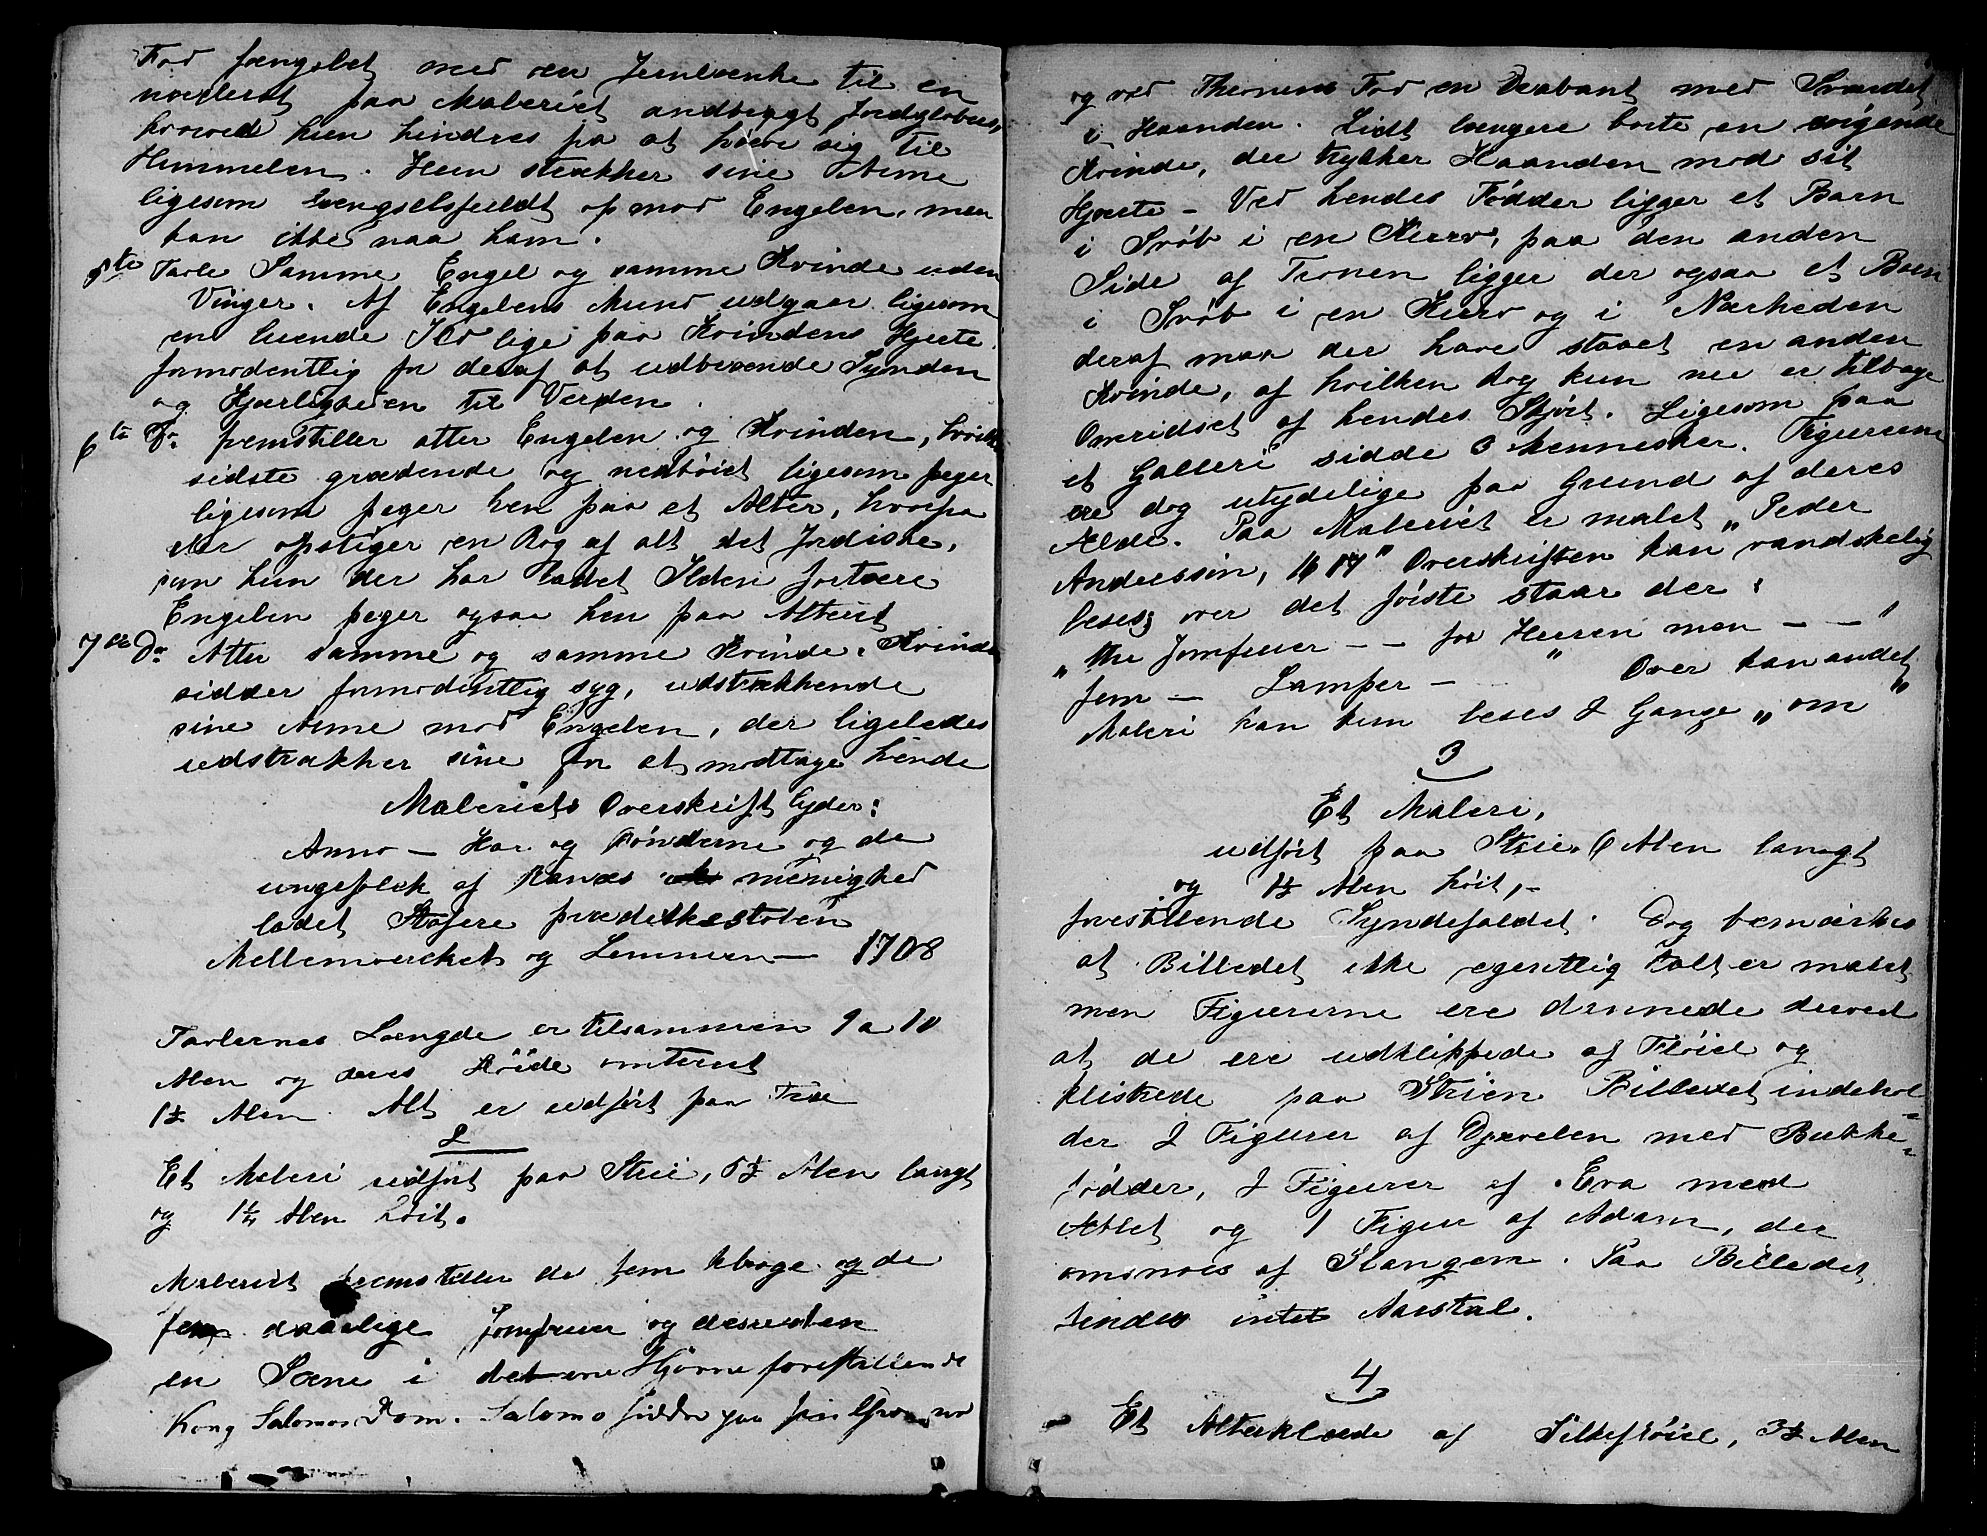 Fod fængslet med en Jernlænke til en
nederst paa Maleriet anbragt Jordglobus,
hvorved hun hindres fra at hæve sig til
Himmelen. Hun strækker sine Arme
ligesom længselsfuldt op mod Engelen, men
kan ikke naa ham.
5te Tavle Samme Engel og samme Kvinde uden
Vinger. Af Engelens Mund udgaar ligesom
en luende Ild lige paa Kvindens Hjerte
formodentlig for deraf at udbrænde Synden
og Kjærligheden til Verden.
6te Do fremstiller atter Engelen og Kvinden, hvilken
sidste grædende og nedbøiet ligesom peger
ligesom peger hen paa et Alter, hvorfra
der opstiger en Røg af alt det Jordiske,
som hun der har ladet Ilden fortære
Engelen peger ogsaa hen paa Alteret
7de Do Atter samme og samme Kvinde. Kvinden
sidder formodentlig syg, udstrækkende
sine Arme mod Engelen, der ligeledes
udstrækker sine for at modtage hende
Maleriets Overskrift lyder:
Anno — Har og Bønderne og de
ungefolck af Ranes menighed
ladet Stafere prædikestolen
Mellemværcket og Lemmeren — 1708
Tavlernes Længde er tilsammen 9 a 10
Alen og deres Høide omtrent
1½ Alen. Alt er udført paa Træ
2
Et Maleri udført paa Strie, 5½ Alen langt
og 1¼ Alen høit.
Maleriet fremstiller de fem kloge og de
fem daarlige Jomfruer og desuden
en Scene i det ene Hjørne forestillende
Kong Salomos Dom. Salomo sidder paa sin Throne
og ved Thronens Fod en Drabant med Sværdet
i Haanden. Lidt længere borte en vigende
Kvinde, der trykker Haanden mod sit
Hjerte – Ved hendes Fødder ligger et Barn
i Svøb i en Kurv, paa den anden
Side af Tronen ligger der ogsaa et Barn
i Svøb i en Kurv og i Nærheden
deraf maa der have staaet en anden
Kvinde, af hvilken dog kun nu er tilbage
Omridset af hendes Skjørt. Ligesom paa
et Galleri sidde 3 Mennesker. Figurerne
ere dog utydelige paa Grund af deres
Ælde. Paa Maleriet er malet „Peder
Anderssøn, 1614" Overskriften kan vandskelig
leses; over det første staar der:
„the Jomfruer – – for Herren men – – "
fem – Lamper – Over han andet
Maleri kan kun leses 2 Gange „om"
3
Et Maleri,
udført paa Strie 6 Alen langt
og 1½ Alen høit, –
forestillende Syndefaldet. Dog bemærkes
at Billedet ikke egentlig talt er malet
men Figurerne ere dannede derved
at de ere udklippede af Fløiel og
klistrede paa Strien Billedet indehol-
der 2 Figurer af Djævelen med Bukke-
fødder, 2 Figurer af Eva med
Æblet og 1 Figur af Adam, der
omsnoes af Slangen. Paa Billedet
findes intet Aarstal.
4
Et Alterklæde af Silkefløiel, 3½ Alen